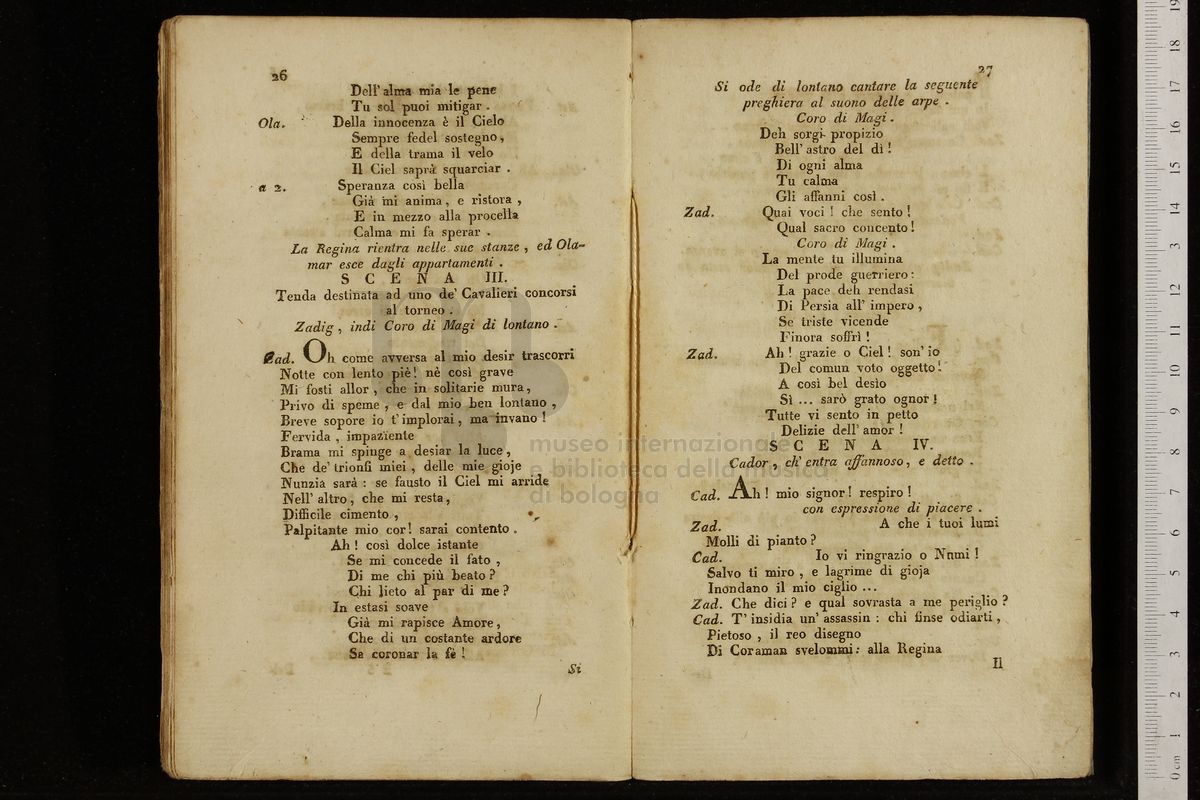 26
Dell' alma mia le pene
Tu sol puoi mitigar .
Ola. Della innocenza è il Cielo
Sempre fedel sostegno,
E della trama il velo
Il Ciel saprà squarciar .
a 2. Speranza così bella
Già mi anima, e ristora ,
E in mezzo alla procella
Calma mi fa sperar .
La Regina rientra nelle sue stanze , ed Ola-
mar esce dagli appartamenti .
SCENA III.
Tenda destinata ad uno de' Cavalieri concorsi
al torneo .
Zadig , indi Coro di Magi di lontano .
Zad. Oh come avversa al mio desir trascorri
Notte con lento piè! nè così grave
Mi fosti allor , che in solitarie mura,
Privo di speme , e dal mio ben lontano ,
Breve sopore io t' implorai, ma invano !
Fervida , impaziente
Brama mi spinge a desiar la luce,
Che de' trionfi miei , delle mie gioje
Nunzia sarà : se fausto il Ciel mi arride
Nell' altro, che mi resta,
Difficile cimento ,
Palpitante mio cor! sarai contento .
Ah ! così dolce istante
Se mi concede il fato ,
Di me chi più beato ?
Chi lieto al par di me ?
In estasi soave
Già mi rapisce Amore,
Che di un costante ardore
Sa coronar la fè !
Si
27
Si ode di lontano cantare la seguente
preghiera al suono delle arpe .
Coro di Magi .
Deh sorgi propizio
Bell' astro del dì !
Di ogni alma
Tu calma
Gli affanni così .
Zad. Quai voci ! che sento !
Qual sacro concento !
Coro di Magi .
La mente tu illumina
Del prode guerriero :
La pace deh rendasi
Di Persia all' impero ,
Se triste vicende
Finora soffrì !
Zad. Ah ! grazie o Ciel ! son' io
Del comun voto oggetto !
A così bel desìo
Sì ... sarò grato ognor !
Tutte vi sento in petto
Delizie dell' amor !
SCENA IV.
Cador , ch' entra affannoso, e detto .
Cad. Ah ! mio signor ! respiro !
con espressione di piacere .
Zad. A che i tuoi lumi
Molli di pianto ?
Cad. Io vi ringrazio o Nnmi !
Salvo ti miro , e lagrime di gioja
Inondano il mio ciglio ...
Zad. Che dici ? e qual sovrasta a me periglio ?
Cad. T' insidia un' assassin : chi finse odiarti ,
Pietoso , il reo disegno
Di Coraman svelommi: alla Regina
Il
museo internazionale
e biblioteca della musica
di bologna
0 cm 1 2 3 4 5 6 7 8 9 10 11 12 13 14 15 16 17 18 19